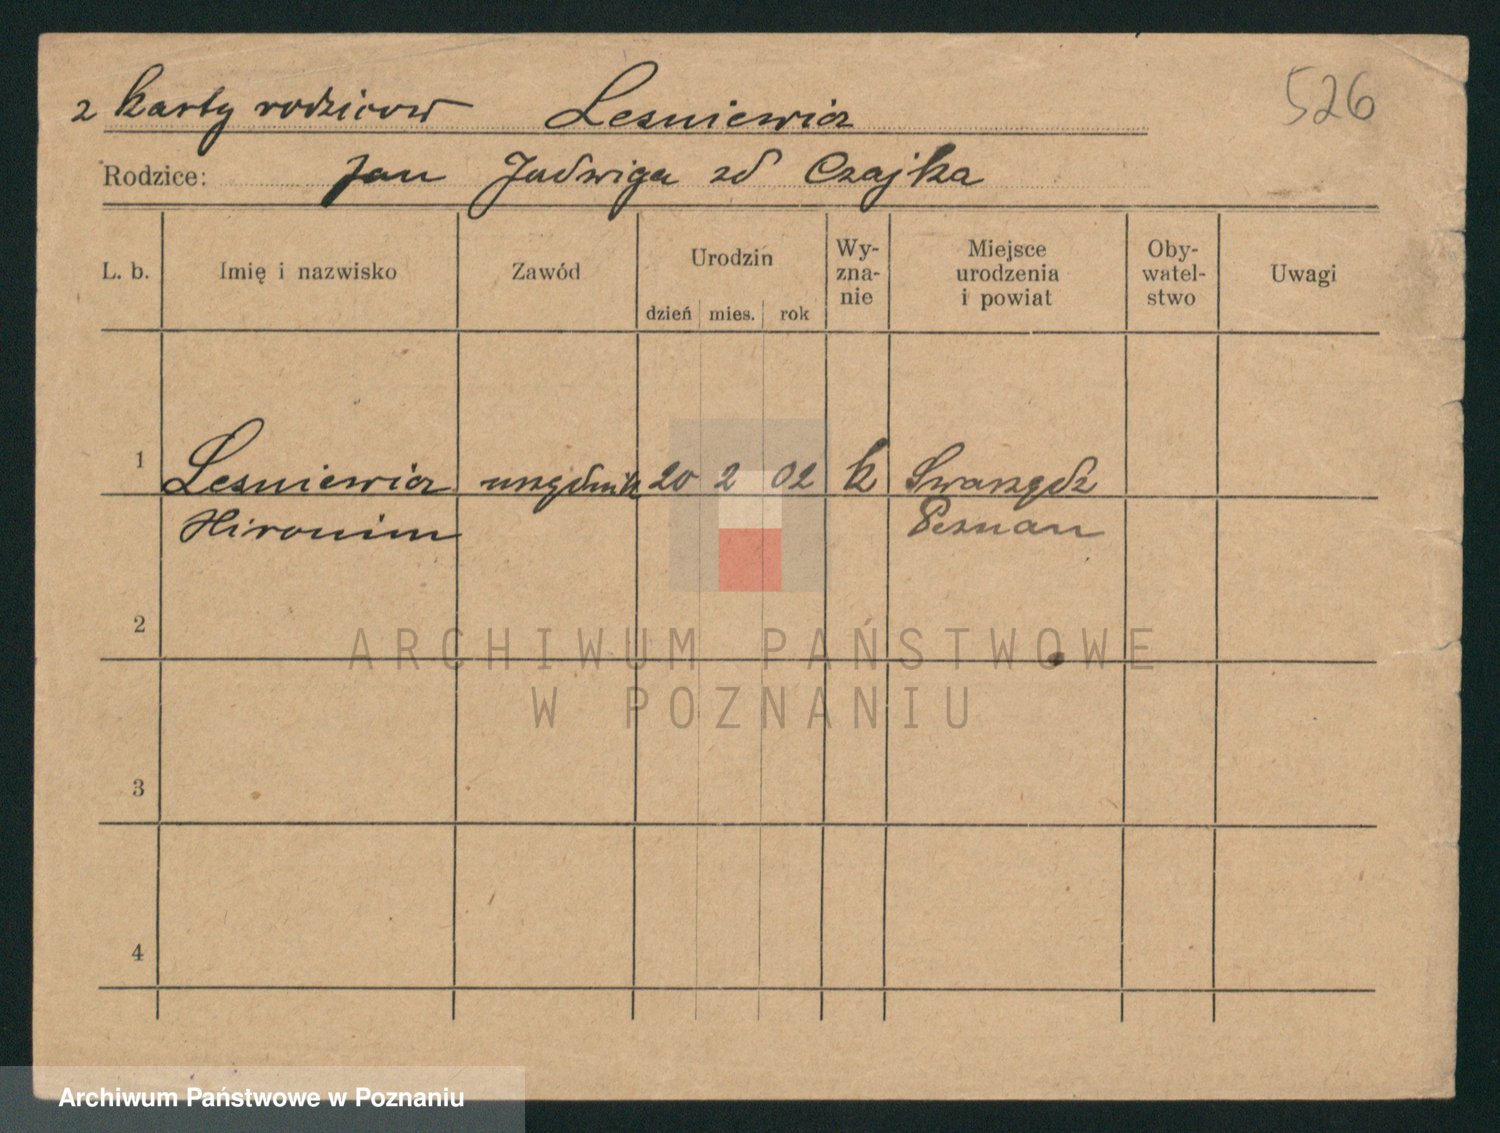 526
z karty rodziców Lesniewicz
Rodzice: Jan Jadwiga zd Czajka
L. b. Imię i nazwisko Zawód Urodzin dzień mies. rok Wy-zna-nie Miejsce urodzenia i powiat Oby-watel-stwo Uwagi
1 Lesniewicz urzędnik 20 2 02 k Swarzędz
Hironim Poznan
2
ARCHIWUM PAŃSTWOWE
W POZNANIU
3
4
Archiwum Państwowe w Poznaniu